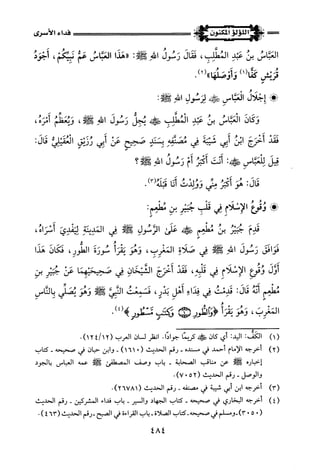 اللؤلؤ المكنون
فداء الأسرى
العَبَّاسُ بنُ عَبْدِ المُطَّلِبِ، فَقَالَ رَسُولُ اللهِ ﷺ: «هَذَا العَبَّاسُ عَمُّ نَبِيِّكُمْ، أَجْوَدُ
قُرَيْشٍ كَفًّا(١) وَأَوْصَلُهَا»(٢).
إِجْلَالُ العَبَّاسِ ﷺ لِرَسُولِ اللهِ ﷺ:
وَكَانَ العَبَّاسُ بنُ عَبْدِ المُطَّلِبِ يُجِلُّ رَسُولَ اللهِ ﷺ، وَيُعَظِّمُ أَمْرَهُ،
فَقَدْ أَخْرَجَ ابْنُ أَبِي شَيْبَةَ فِي مُصَنَّفِهِ بِسَنَدٍ صَحِيحٍ عَنْ أَبِي رُزَيْنٍ العُقَيْلِيِّ قَالَ:
قِيلَ لِلْعَبَّاسِ: أَنْتَ أَكْبَرُ أَمْ رَسُولُ اللهِ ﷺ؟
قَالَ: هُوَ أَكْبَرُ مِنِّي وَوُلِدْتُ أَنَا قَبْلَهُ(٣).
وُقُوعُ الإِسْلَامِ فِي قَلْبِ جُبَيْرِ بنِ مُطْعِمٍ:
قَدِمَ جُبَيْرُ بنُ مُطْعِمٍ عَلَى الرَّسُولِ ﷺ فِي المَدِينَةِ لِيَفْدِيَ أَسْرَاهُ،
فَوَافَقَ رَسُولَ اللهِ ﷺ فِي صَلَاةِ المَغْرِبِ، وَهُوَ يَقْرَأُ سُورَةَ الطُّورِ، فَكَانَ هَذَا
أَوَّلَ وُقُوعِ الإِسْلَامِ فِي قَلْبِهِ، فَقَدْ أَخْرَجَ الشَّيْخَانِ فِي صَحِيحَيْهِمَا عَنْ جُبَيْرِ بنِ
مُطْعِمٍ أَنَّهُ قَالَ: قَدِمْتُ فِي فِدَاءِ أَهْلِ بَدْرٍ، فَسَمِعْتُ النَّبِيَّ ﷺ وَهُوَ يُصَلِّي بِالنَّاسِ
المَغْرِبَ، وَهُوَ يَقْرَأُ ﴿وَالطُّورِ ۝ وَكِتَابٍ مَّسْطُورٍ﴾(٤).
(١) الكَفُّ: اليد: أي كان كريمًا جوادًا. انظر لسان العرب (١٢٤/١٢).
(٢) أخرجه الإمام أحمد في مسنده - رقم الحديث (١٦١٠) - وابن حبان في صحيحه - كتاب
إخباره ﷺ عن مناقب الصحابة - باب وصف المصطفى ﷺ عمه العباس بالجود
والوصل - رقم الحديث (٧٠٥٢).
(٣) أخرجه ابن أبي شيبة في مصنفه - رقم الحديث (٢٦٧٨١).
(٤) أخرجه البخاري في صحيحه - كتاب الجهاد والسير - باب فداء المشركين - رقم الحديث
(٣٠٥٠) - ومسلم في صحيحه - كتاب الصلاة - باب القراءة في الصبح - رقم الحديث (٤٦٣).
٤٨٤